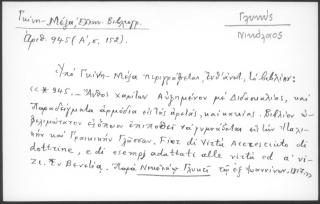 Γκίνη - Μέξα, Ἑλλην. Βιβλιογρ.
Γλυκύς
Νικόλαος
Ἀριθ. 945 (Α', σ. 152).
Ὑπὸ Γκίνη - Μέξα περιγράφεται, ἐνθ' ἀνωτ., τὸ βιβλίον:
« * 945.- Ἄνθος χαρίτων Αὐξημένον μὲ Διδασκαλίας, καὶ
Παραδείγματα ἁρμόδια εἰς τὰς ἀρετάς, καὶ κακίας. Βιβλίον ὠ-
φελιμώτατον εἰς ὅποιον ἐπιποθεῖ νὰ γυμνάζεται εἰς τὴν Ἰταλι-
κὴν καὶ Γραικικὴν Γλῶσσαν. Fior di Virtù Accresciuto di
dottrine, e di esempj adattati alle virtù ed a' vi-
zi. Ἐν Βενετίᾳ. Παρὰ Νικολάῳ Γλυκεῖ τῷ ἐξ Ἰωαννίνων. 1817.»